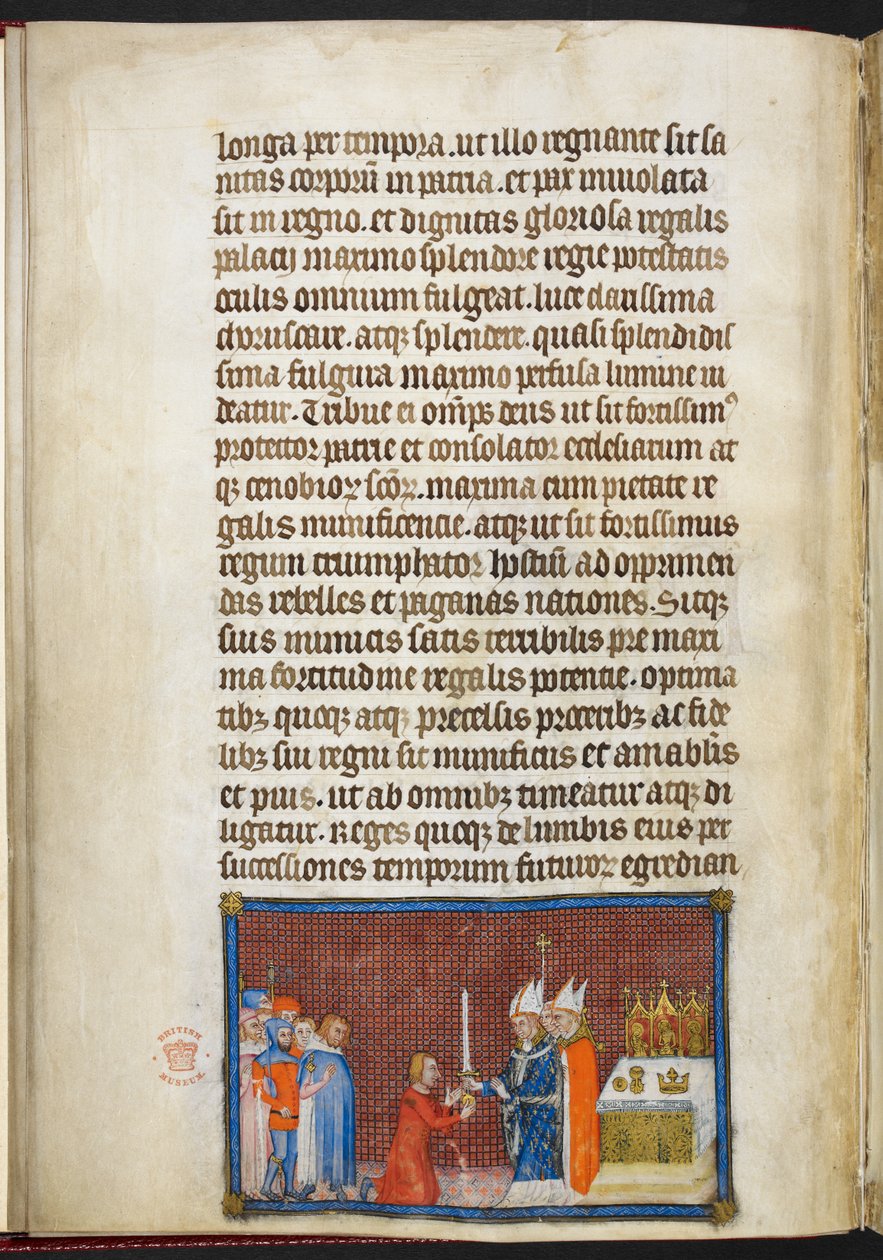 longa per tempora. ut illo regnante sit sa
nitas corporū in patria. et pax inuiolata
sit in regno. et dignitas gloriosa regalis
palacij maximo splendore regie potestatis
oculis omnium fulgeat. luce clarissima
choruscare. atqꝫ splendere. quasi splendidis
sima fulgura maximo perfusa lumine ui
deatur. Tribue ei om̄ps deus ut sit fortissimꝰ
protector patrie et consolator ecclesiarum at
qꝫ cenobioꝝ sc̄oꝝ. maxima cum pietate re
galis munificencie. atqꝫ ut sit fortissimus
regum triumphator hostiū ad opprimen
das rebelles et paganas nationes. Sitqꝫ
suis inimicis satis terribilis pre maxi
ma fortitudine regalis potentie. optima
tibꝫ quoqꝫ atqꝫ precelsis proceribꝫ ac fide
libꝫ sui regni sit munificus et amabil̄is
et pius. ut ab omnibꝫ timeatur atqꝫ di
ligatur. Reges quoqꝫ de lumbis eius per
successiones temporum futuroꝝ egredian
BRITISH
MUSEUM